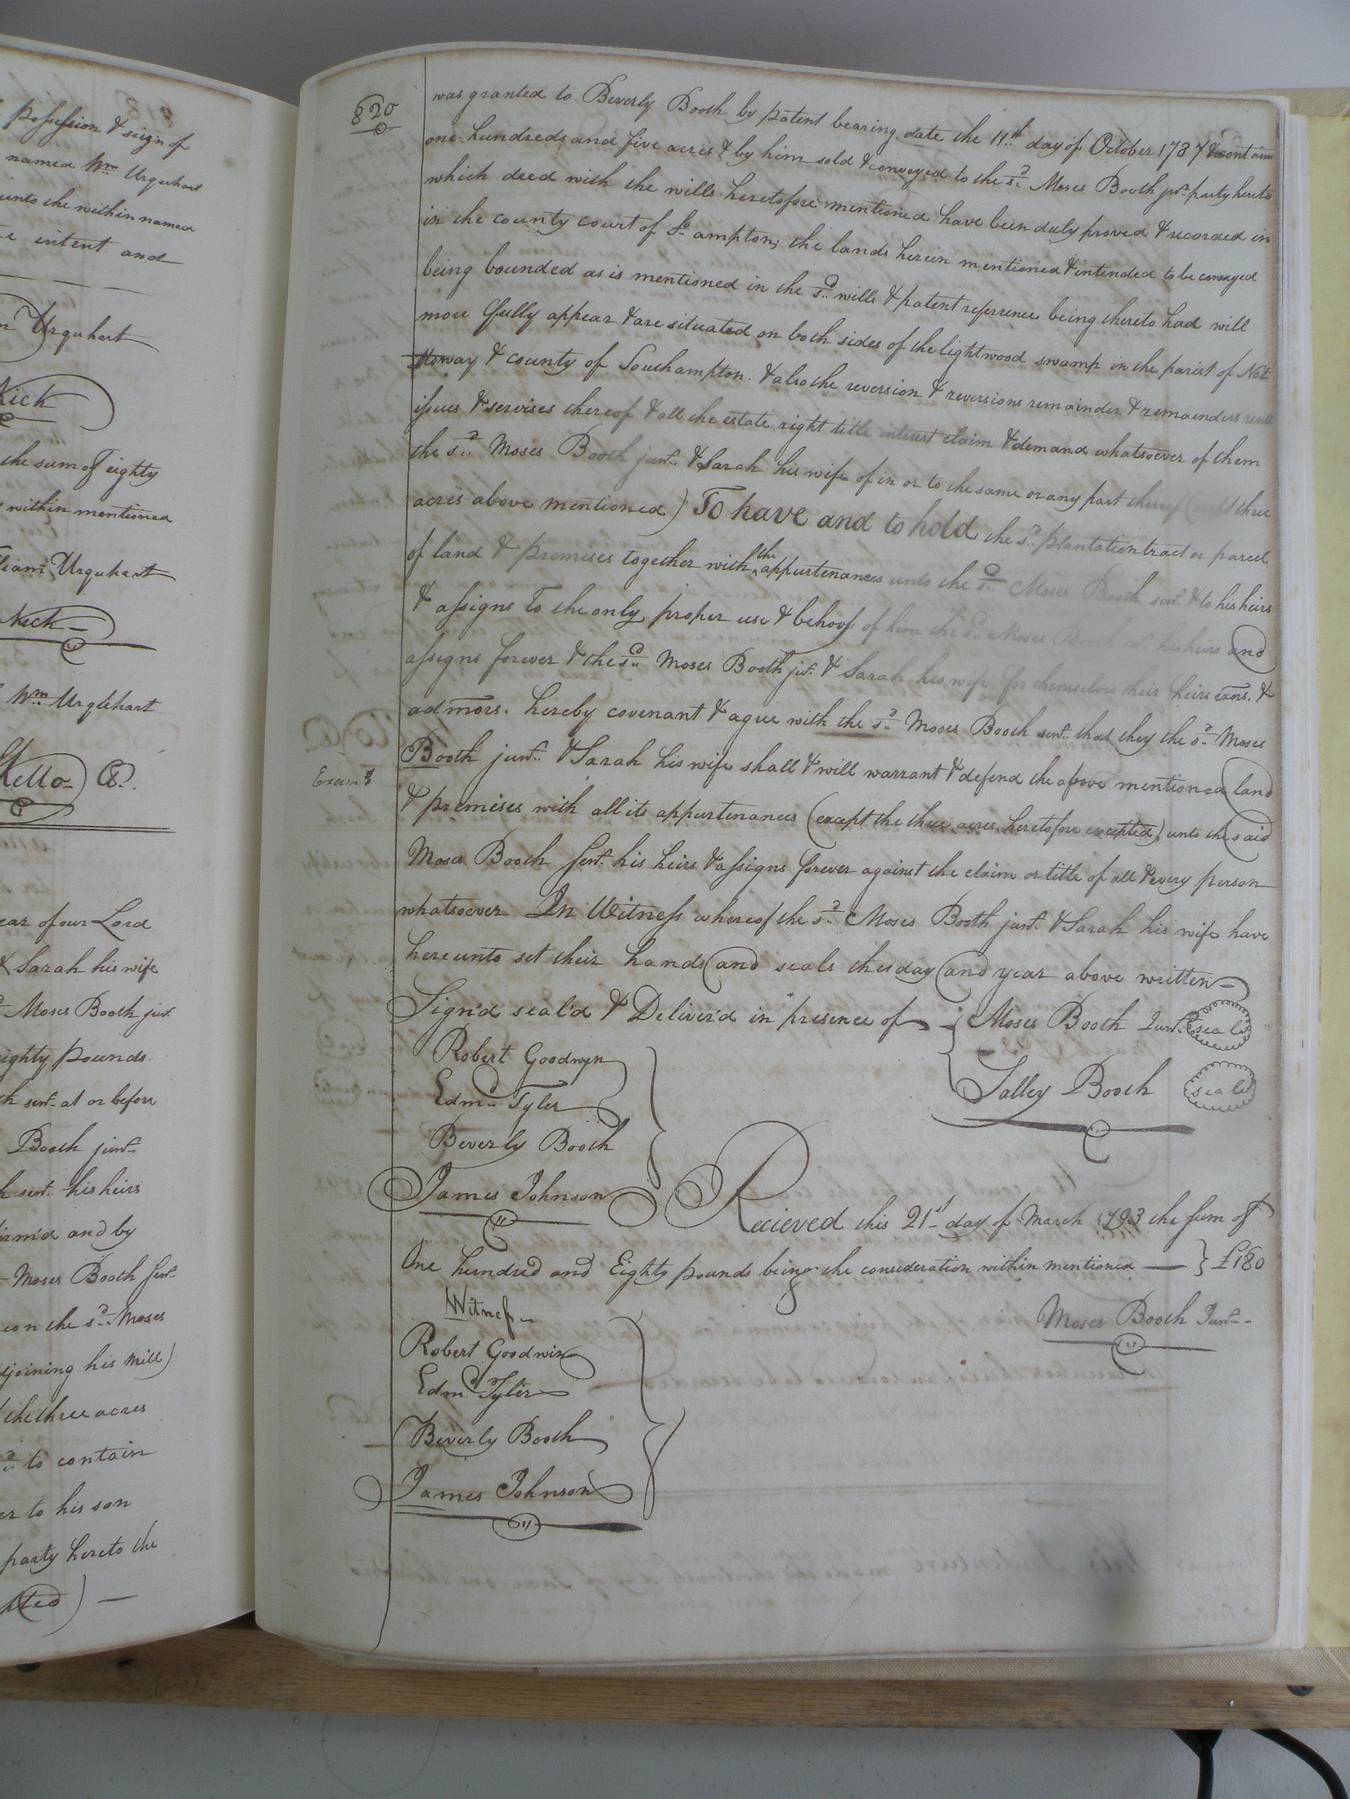 possession & seizn of
named Wm. Urquhart
unto the within named
intent and
Urquhart
Kick
the sum of eighty
within mentioned
William Urquhart
Nick
Wm. Urquhart
Kello C.
year of our Lord
& Sarah his wife
Moses Booth junr.
eighty pounds
senr. at or before
Booth junr.
senr. his heirs
and by
Moses Booth Senr.
on the sd. Moses
adjoining his mill)
the three acres
to contain
to his son
party hereto the
820
was granted to Beverly Booth by patent bearing date the 11th day of October 1787
one hundred and five acres & by him sold & conveyed to the sd. Moses Booth jur. party hereto
which deed with the wills heretofore mentioned have been duly proved & recorded in
in the county court of So. ampton; the lands herein mentioned & intended to be conveyed
being bounded as is mentioned in the sd. wills & patent reference being thereto had will
more fully appear & are situated on both sides of the lightwood swamp in the parish of Not
toway & county of Southampton. & also the reversion & reversions remainder & remainders rents
issues & servises thereof & all the estate right title interest claim & demand whatsoever of them
the sd. Moses Booth junr. & Sarah his wife of in or to the same or any part thereof three
acres above mentioned) To have and to hold the sd. plantation tract or parcel
of land & premises together with the appurtenances unto the sd. Moses Booth senr. & to his heirs
& assigns To the only proper use & behoof of him the sd. Moses Booth sr. his heirs and
assigns forever & the sd. Moses Booth jur. & Sarah his wife for themselves their heirs exors. &
admors. hereby covenant & agree with the sd. Moses Booth senr. that they the sd. Moses
Booth junr. & Sarah his wife shall & will warrant & defend the above mentioned land
Examd.
& premises with all its appurtenances (except the three acres heretofore excepted) unto the said
Moses Booth Senr. his heirs & assigns forever against the claim or title of all & every person
whatsoever In Witness whereof the sd. Moses Booth junr. & Sarah his wife have
hereunto set their hands and seals the day and year above written
Sign'd seal'd & Deliver'd in presence of { Moses Booth Junr. seal
Robert Goodwyn
Edmd. Tyler
Salley Booth seal
Beverly Booth
James Johnson
Recieved this 21st day of March 1793 the sum of
One hundred and Eighty pounds being the consideration within mentioned — } £180
Witness
Moses Booth Junr.
Robert Goodwin
Edmd. Tyler
Beverly Booth
James Johnson